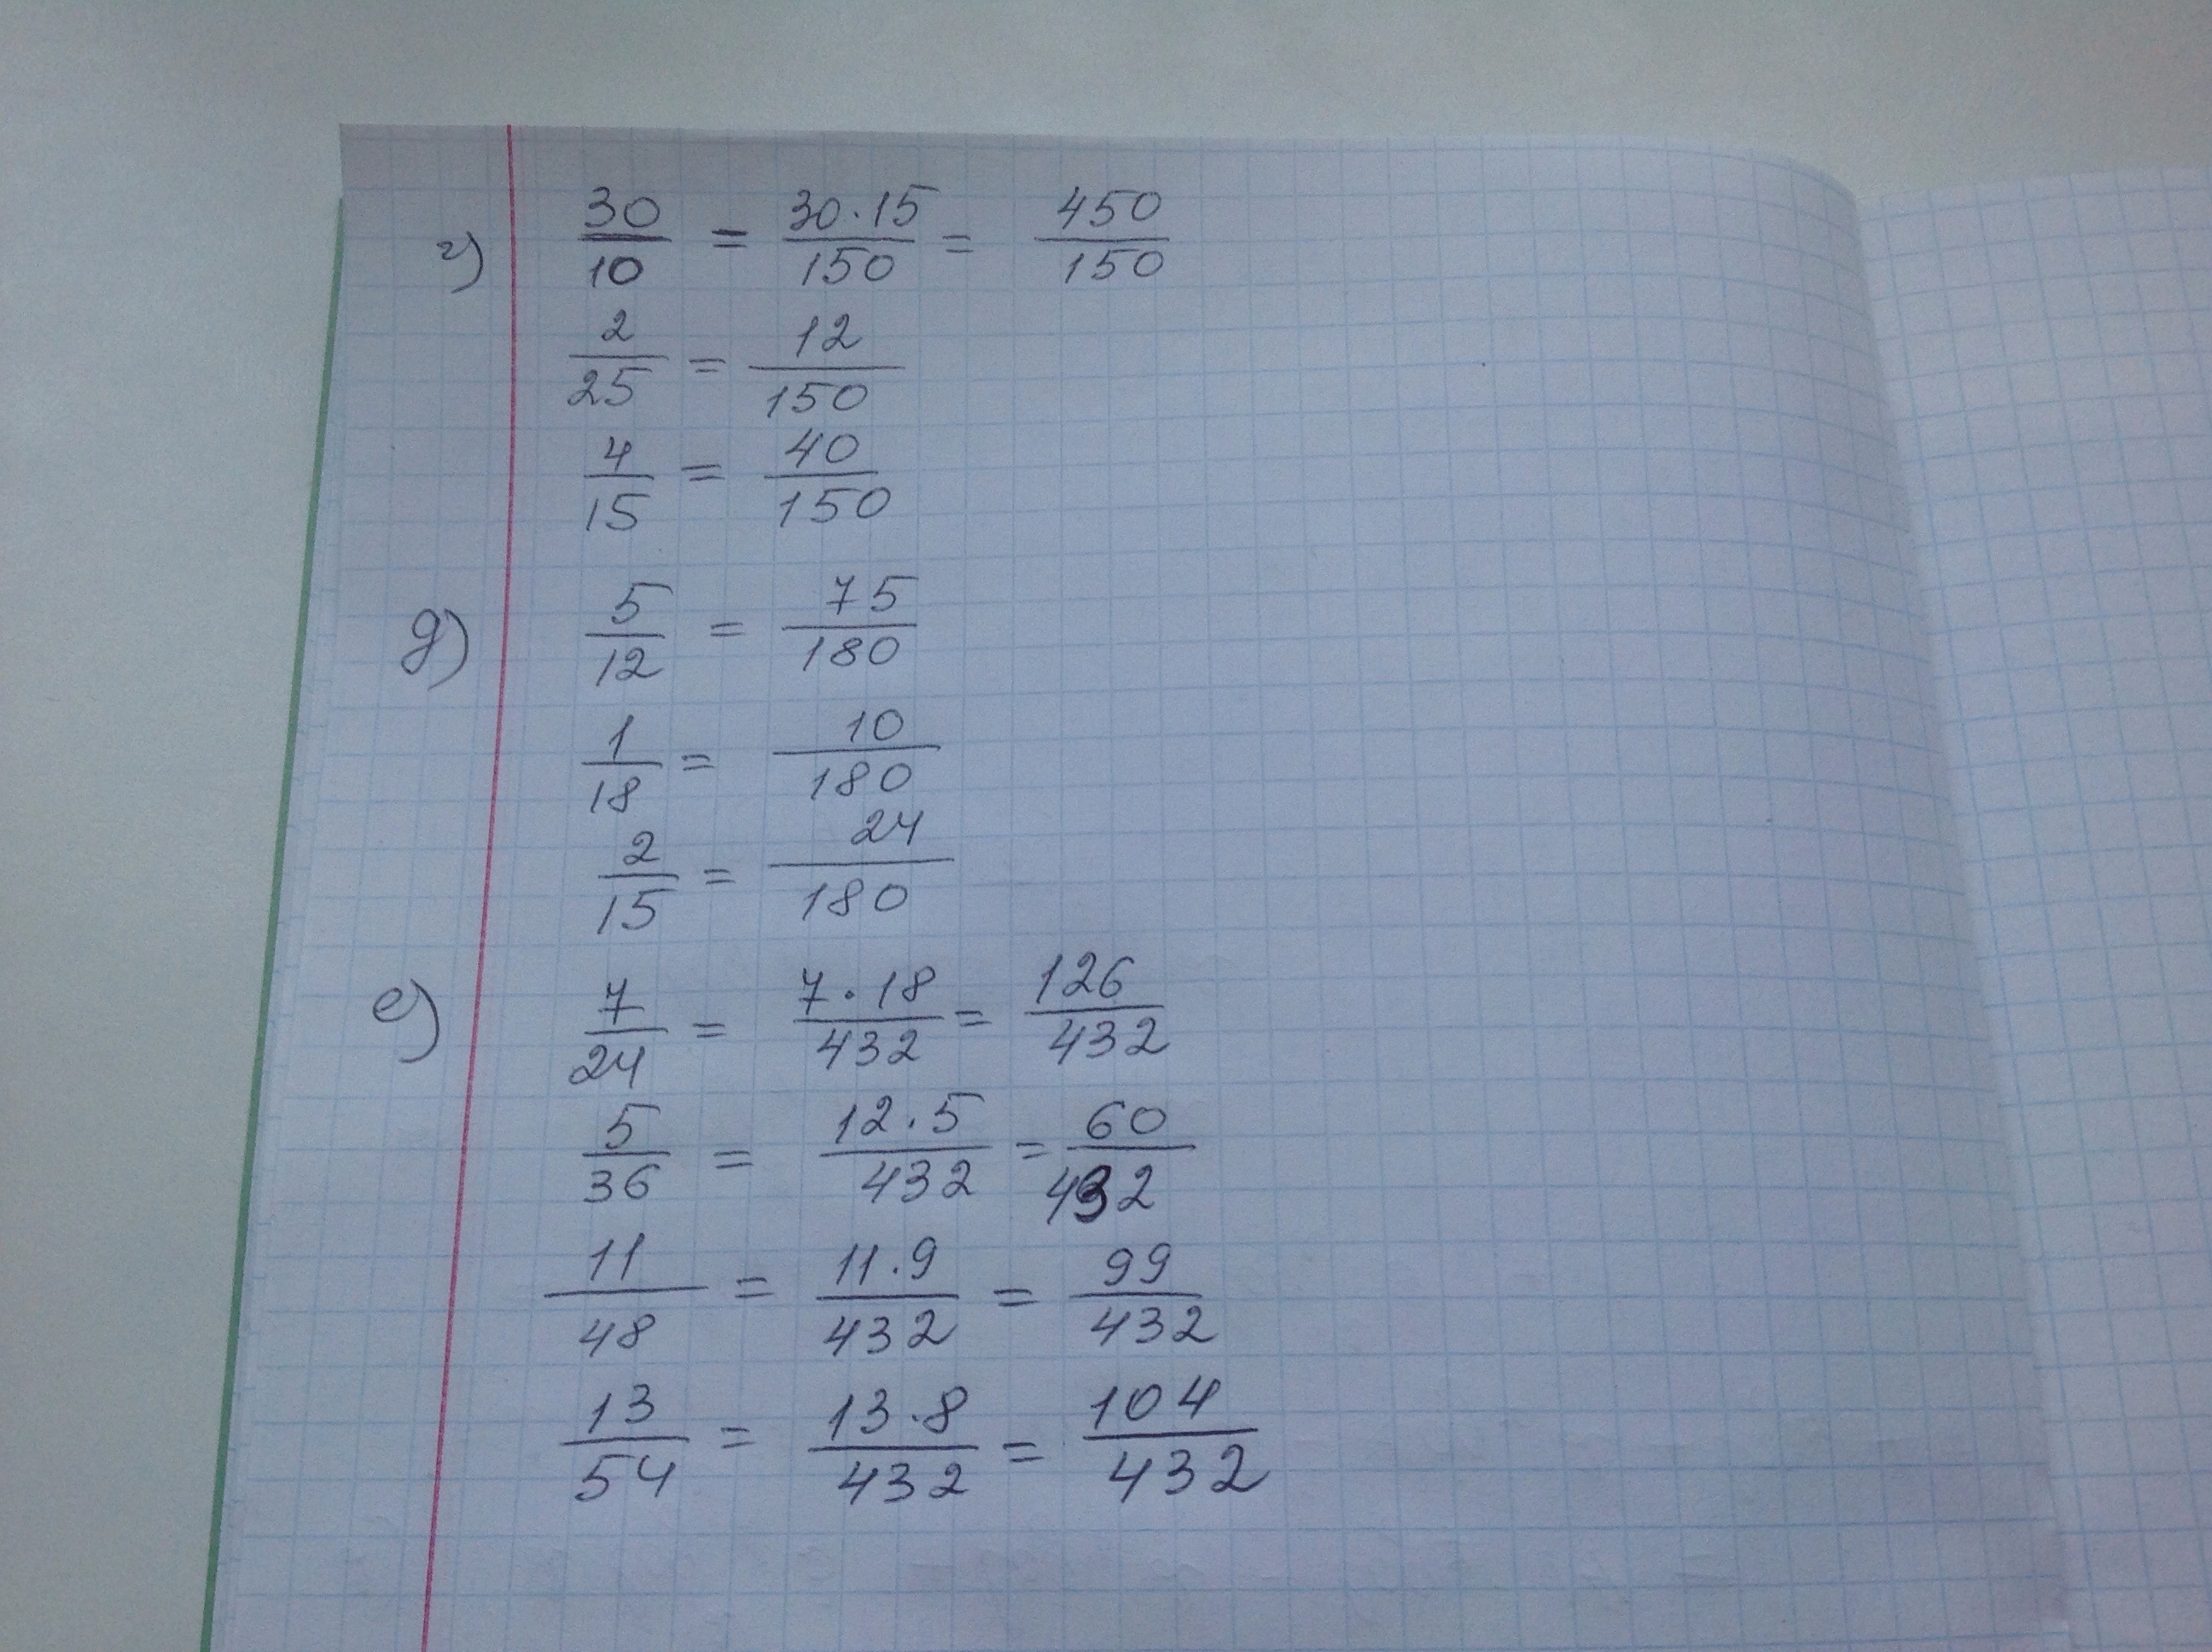 г) 30/10 = 30·15/150 = 450/150
2/25 = 12/150
4/15 = 40/150
д) 5/12 = 75/180
1/18 = 10/180
2/15 = 24/180
е) 7/24 = 7·18/432 = 126/432
5/36 = 12·5/432 = 60/432
11/48 = 11·9/432 = 99/432
13/54 = 13·8/432 = 104/432